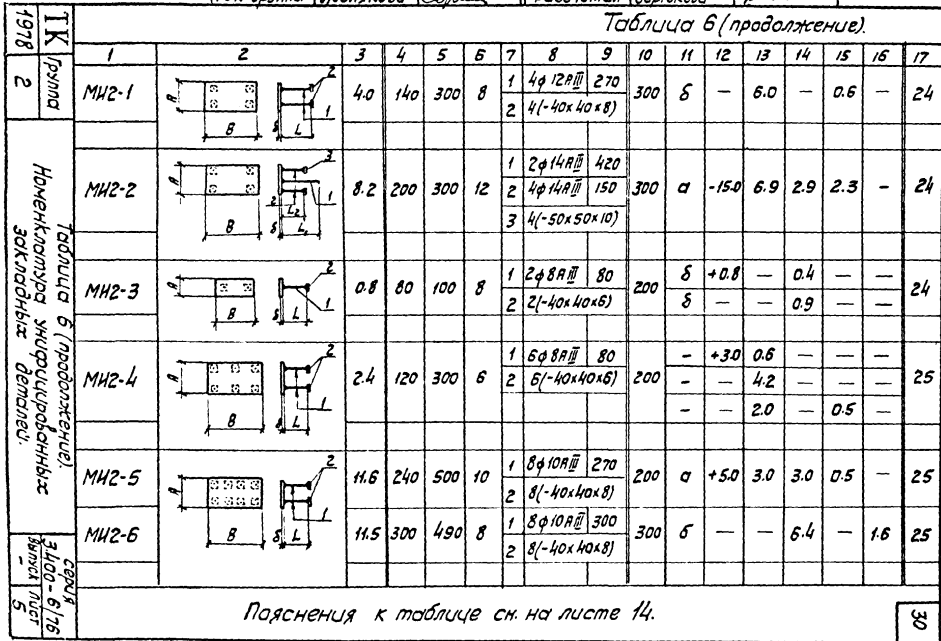 Таблица 6 (продолжение).
1 2 3 4 5 6 7 8 9 10 11 12 13 14 15 16 17
МИ2-1 А В δ L 2 1 4.0 140 300 8 1 4ф12АIII 270 300 б — 6.0 — 0.6 — 24
2 4(-40х40х8)
МИ2-2 А В δ L₂ L₁ 3 2 1 8.2 200 300 12 1 2ф14АIII 420 300 а -15.0 6.9 2.9 2.3 - 24
2 4ф14АIII 150
3 4(-50х50х10)
МИ2-3 А В δ L 2 1 0.8 80 100 8 1 2ф8АIII 80 200 б +0.8 — 0.4 — — 24
2 2(-40х40х6) б — — 0.9 — —
МИ2-4 А В δ L 2 1 2.4 120 300 6 1 6ф8АIII 80 200 - +3.0 0.6 — — — 25
2 6(-40х40х6) - — 4.2 — — —
- — 2.0 — 0.5 —
МИ2-5 А В δ L 2 1 11.6 240 500 10 1 8ф10АIII 270 200 а +5.0 3.0 3.0 0.5 — 25
2 8(-40х40х8)
МИ2-6 11.5 300 490 8 1 8ф10АIII 300 300 б — — 6.4 - 1.6 25
2 8(-40х40х8)
Пояснения к таблице см. на листе 14.
30
ТК
1978
Группа
2
Таблица 6 (продолжение).
Номенклатура унифицированных
закладных деталей.
серия
3.400-6/76
выпуск лист
- 5